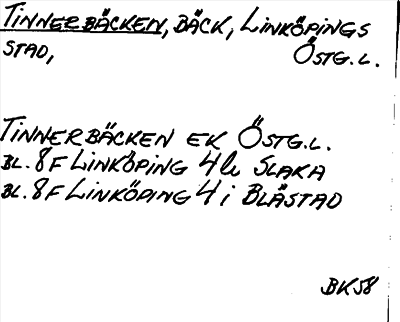 TINNERBÄCKEN, BÄCK, LINKÖPINGS
STAD, ÖSTG.L.
TINNERBÄCKEN EK ÖSTG.L.
BL. 8F LINKÖPING 4h SLAKA
BL. 8F LINKÖPING 4i BLÄSTAD
BK58